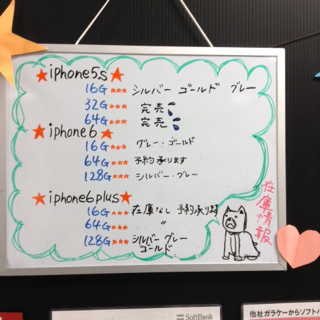 ★iphone5s★
16G★★★ シルバー ゴールド グレー
32G★★★ 完売
64G★★★ 完売
★iphone6★
16G★★★ グレー・ゴールド
64G★★★ 予約承ります
128G★★★ シルバー・グレー
★iphone6plus★
16G★★★ 在庫なし 予約承ります
64G★★★ 〃
128G★★★ シルバー グレー
ゴールド
在庫情報
SoftBank
他社ガラケーからソフトバ